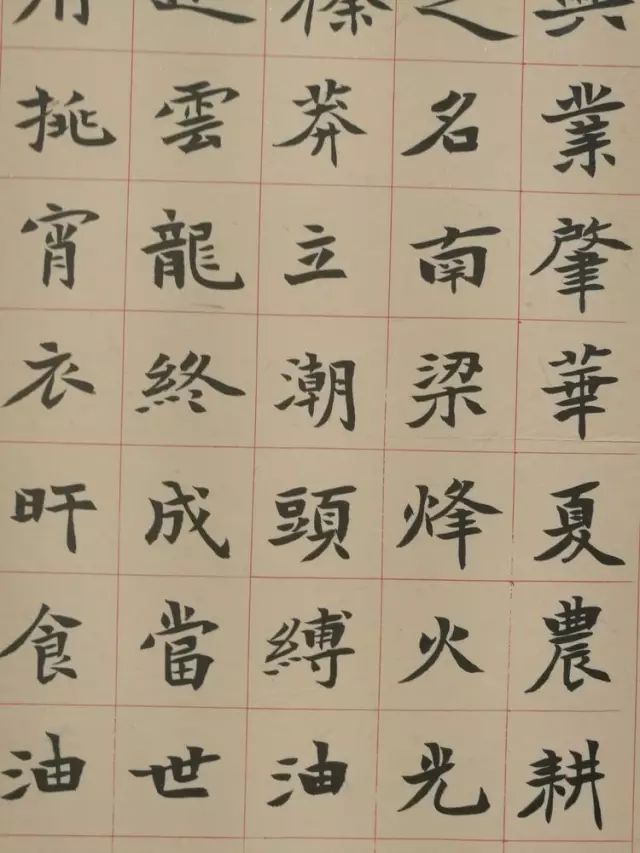 興業肇華夏農耕
之名南梁烽火光
榛莽立潮頭縛油
雲龍終成當世
挑宵衣旰食油